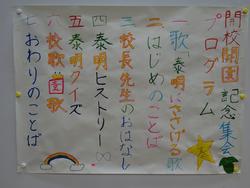 開校開園記念集会
プログラム
一 歌 泰明にささげる歌
二 はじめのことば
三 校長先生のおはなし
四 泰明ヒストリー
五 泰明クイズ
六 校歌・園歌
七 おわりのことば